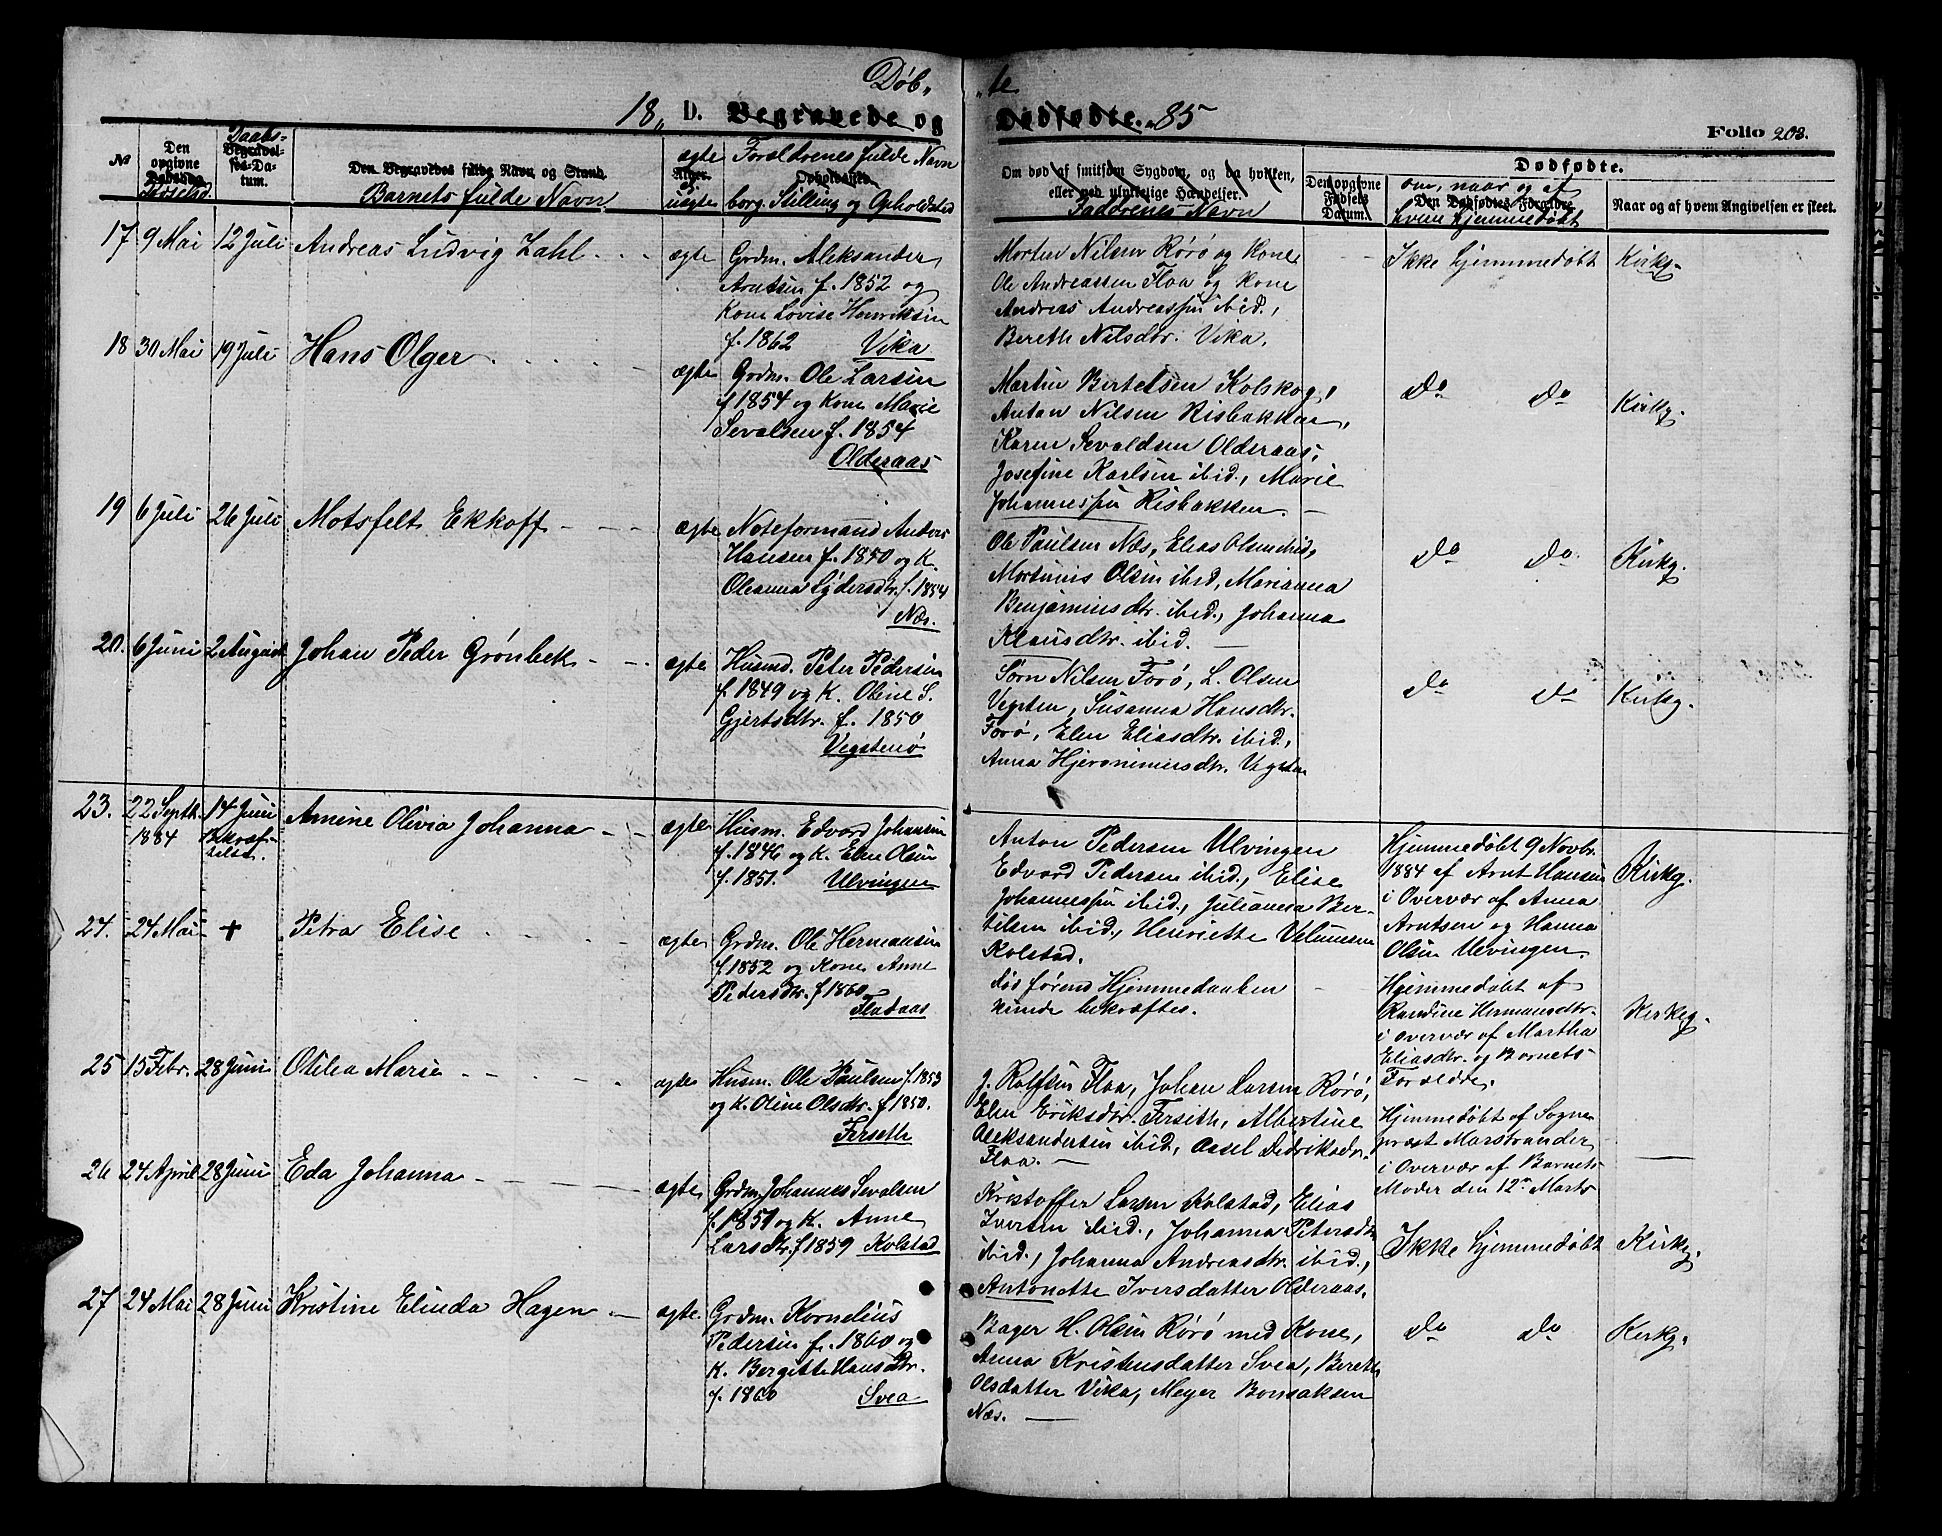 Døb„
„te
18„ D. Begravede og
Dødfødte. „85
Folio 203.
No
Den opgivne Dødsdag
Fødselsd.
Daabs-
Begravelses-Datum.
Den Begravedes fulde Navn og Stand.
Barnets fulde Navn
ægte
Alder.
uægte
Forældrenes fulde Navn
Opholdssted.
borg. Stilling og Opholdsted
Om død af smitsom Sygdom, og da hvilken,
eller ved ulykkelige Hændelser.
Faddrenes Navn
Den opgivne Fødsels Datum.
Dødfødte.
om, naar og af
Den Dødfødtes Forældre
hvem hjemmedøbt
Naar og af hvem Angivelsen er skeet.
17 9 Mai 12 Juli Andreas Ludvig Zahl
ægte
Grdm. Aleksander
Arntsen f. 1852 og
Kone Lovise Henriksen
f. 1862 Vika
Morten Nilsen Rørø og Kone
Ole Andreassen Floa og Kone
Andreas Andreassen ibid.,
Bereth Nilsdtr. Vika.
Ikke hjemmedøbt
Kirkg.
18 30 Mai 19 Juli Hans Olger
ægte
Grdm. Ole Larsen
f 1854 og Kone Marie
Sevalsen f. 1854
Olderaas
Martin Bertelsen Kolskog,
Antan Nilsen Risbakken,
Karen Sevaldsen Olderaas,
Josefine Karlsen ibid., Marie
Johannessen Risbakken. —
do do
Kirkg.
19 6 Juli 26 Juli Motsfelt Ekkoff
ægte
Noteformand Anders
Hansen f. 1850 og K.
Oleanna Lydersdtr. f. 1854
Næs.
Ole Paulsen Næs, Elias Olsen ibid,
Mortinus Olsen ibid, Marianna
Benjaminsdtr. ibid., Johanna
Klausdtr. ibid. —
do do
Kirkg.
20. 6 Juni 2 August Johan Peder Grønbek
ægte
Husmd. Peter Pedersen
f. 1849 og K. Oline S.
Gjertsdtr. f. 1850
Vegstenø
Sørn Nilsen Forø, L. Olsen
Vegsten, Susanna Hansdtr.
Forø, Elen Eliasdtr. ibid.,
Anna Hjeronimusdtr. Vegsten
do do
Kirkg.
23. 22 Septb. 1884
14 Juni Bekræftelse.
Amine Olivia Johanna
ægte
Husm. Edvard Johansen
f. 1846 og K. Elen Olsen
f. 1851. Ulvingen
Anton Pedersen Ulvingen
Edvard Pedersen ibid., Elise
Johannessen ibid., Julianna Ber-
tilsen ibid., Henriette Velumsen
Kolstad.
Hjemmedøbt 9 Novbr.
1884 af Arnt Hansen
i Overvær af Anna
Arntsen og Hanna
Olsen Ulvingen.
Kirkg.
24. 24 Mai + Petra Elise
ægte
Grdm. Ole Hermansen
f 1852 og Kone Anne
Pedersdtr. f 1860
Fladaas
død førend Hjemmedaaben
kunde bekræftes.
Hjemmedøbt af
Randine Hermansdtr.
i overvær af Martha
Eliasdtr. og Barnets
Forældre.
Kirkeg.
25 15 Febr. 28 Juni Otilea Marie
ægte
Husm. Ole Paulsen f. 1853
og K. Oline Olsdtr. f 1850.
Ferseth
J. Rolfsen Floa, Johan Larsen Rørø,
Elen Eriksdtr. Ferseth, Albertine
Aleksandersen ibid., Aasel Didriksdtr.
Floa. —
Hjemmedøbt af Sogne
præst Marstrander
i Overvær af Barnets
Moder den 12te Marts
26 24 April 28 Juni Eda Johanna
ægte
Grdm. Johannes Sevalsen
f. 1851 og K. Anne
Larsdtr. f 1859 Kolstad
Kristoffer Larsen Kolstad, Elias
Iversen ibid., Johanna Petersdtr.
ibid., Johanna Andreasdtr. ibid.,
Antonette Iversdatter Olderaas.
Ikke hjemmedøbt
Kirkg.
27 24 Mai 28 Juni Kristine Elinda Hagen
ægte.
Grdm. Kornelius
Pedersen f. 1860 og
K. Bergitte Hansdtr.
f. 1860 Svea
Bager H. Olsen Rørø med Kone,
Anna Kristensdatter Svea, Bereth
Olsdatter Vika, Meyer Bonsaksen
Næs. —
do do
Kirkg.